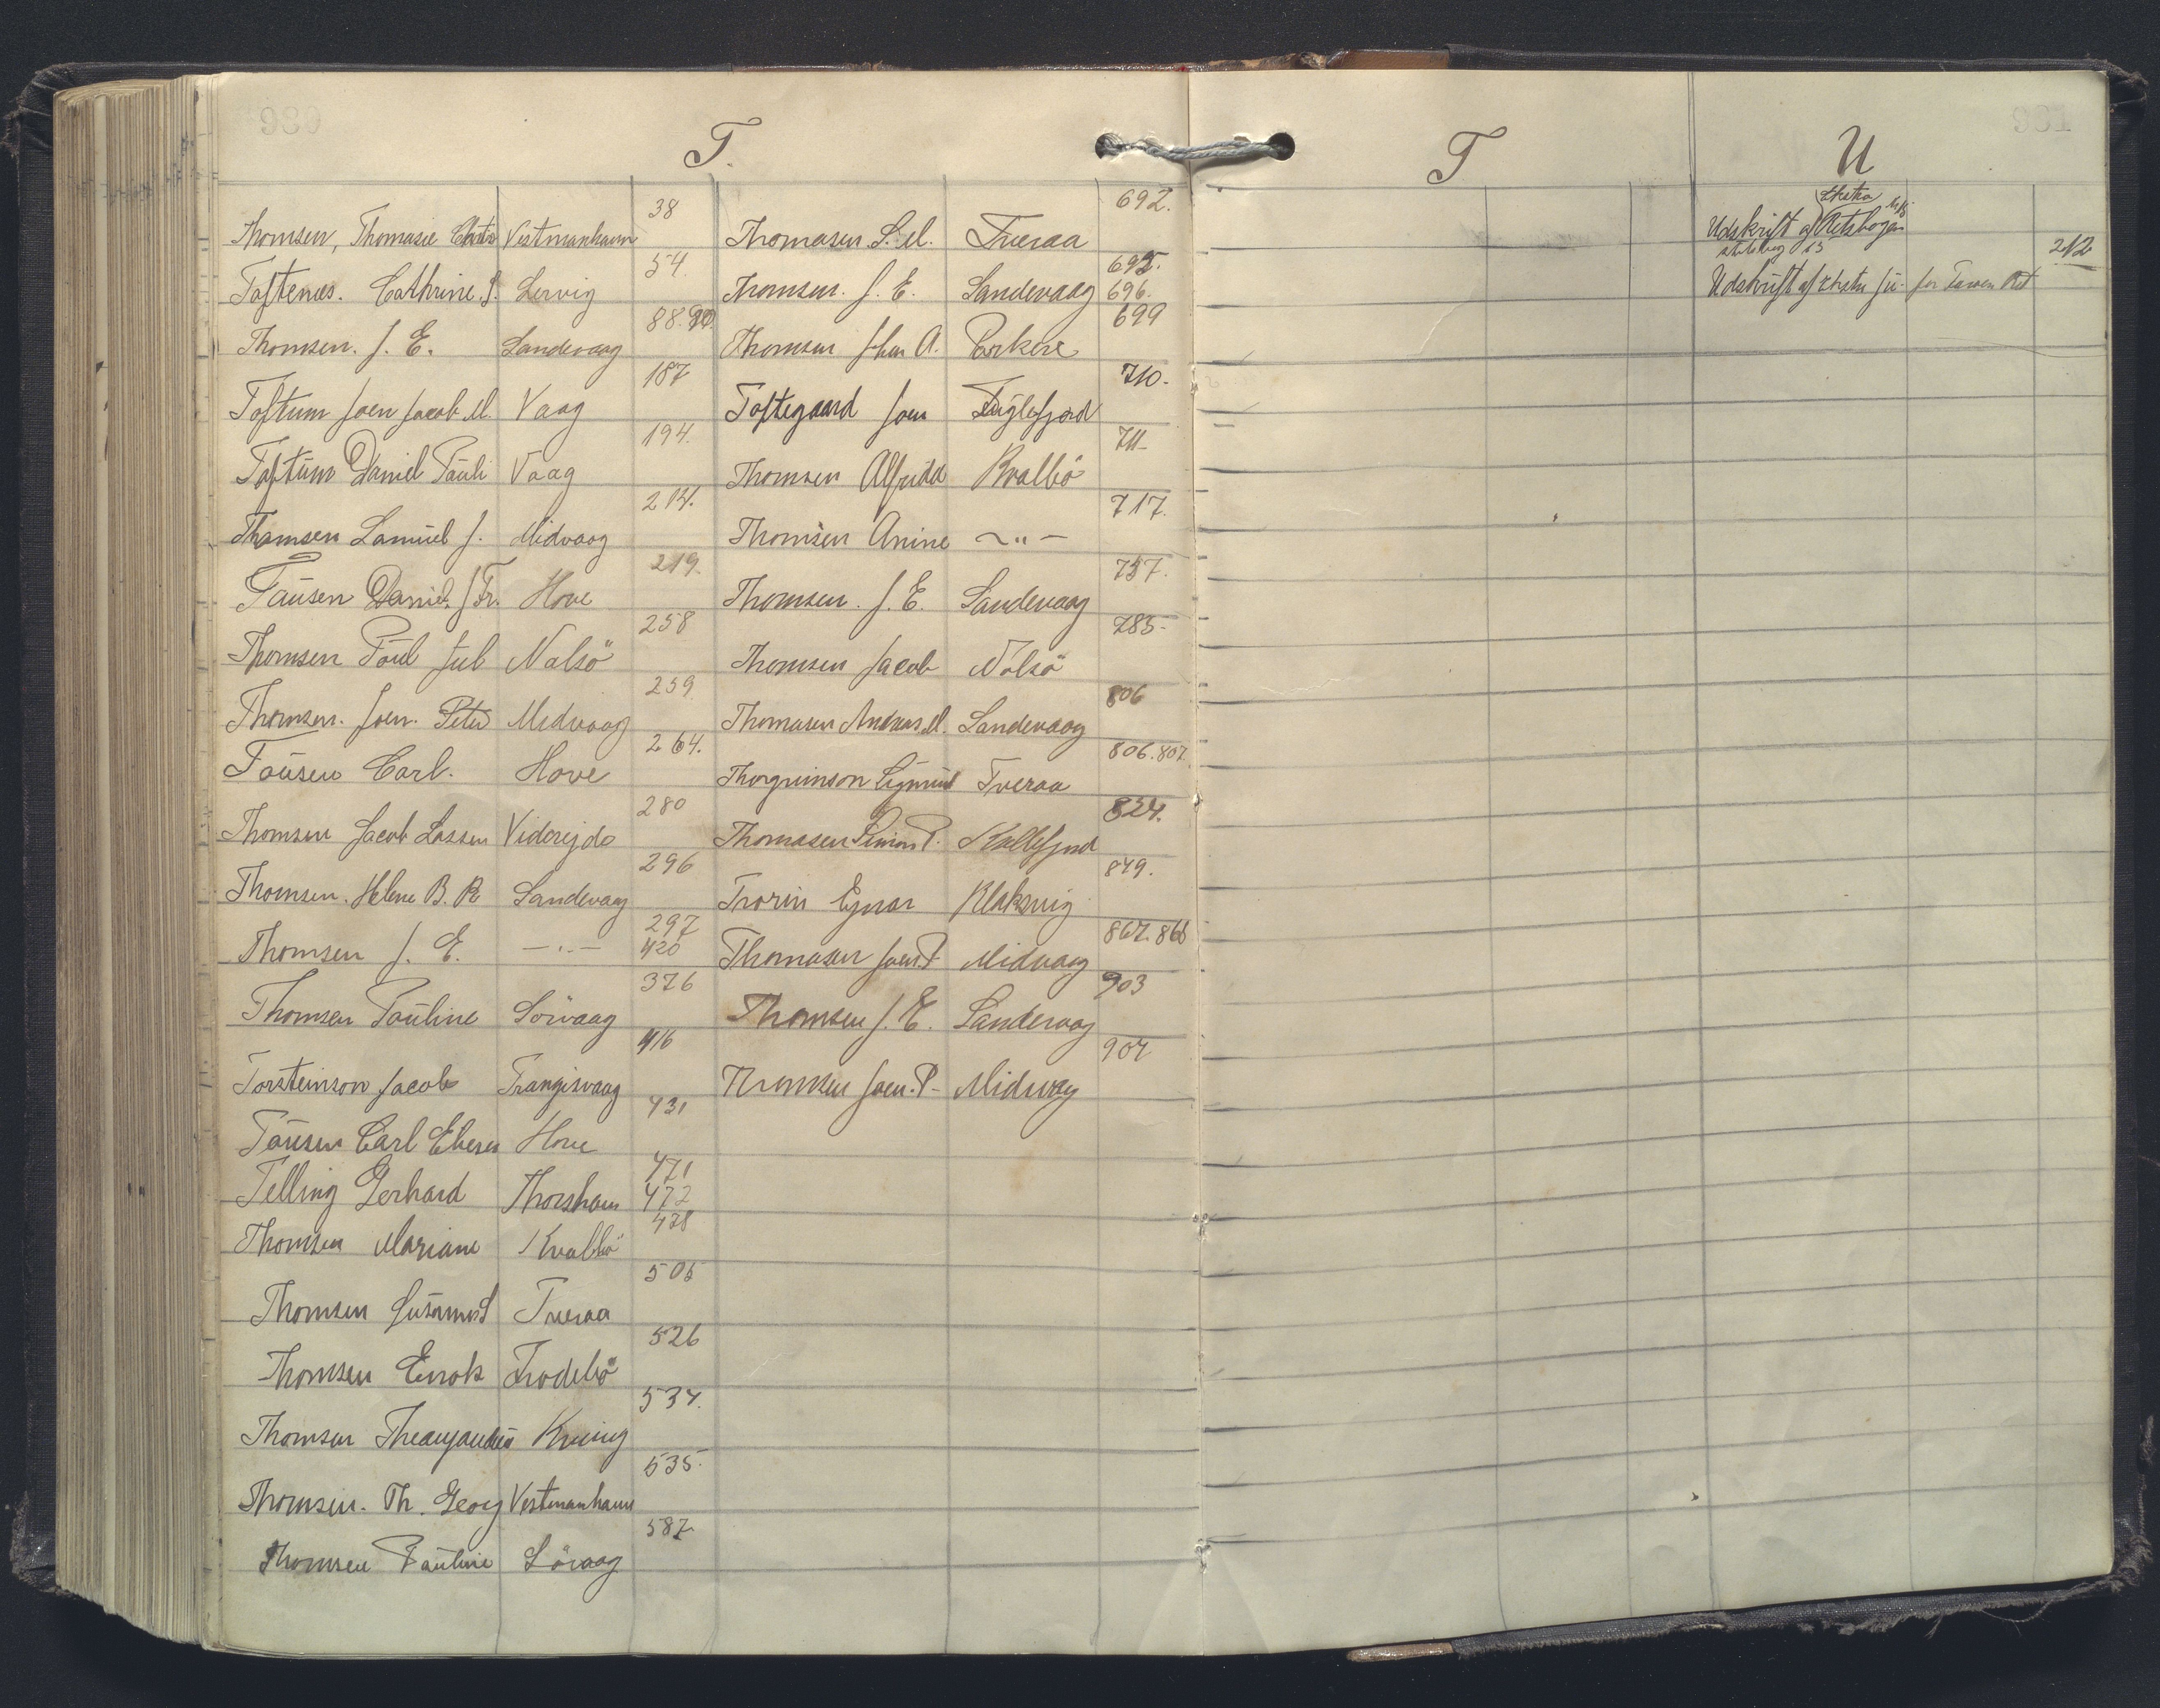 T.
Thomsen, Thomasie Chr. Vestmanhavn 38
Toftenes. Cathrine. J. Lervig 54.
Thomsen. J. E. Sandevaag 88. 90.
Toftum Joen Jacob M. Vaag 187
Toftum Daniel Pauli Vaag 194.
Thomsen Samuel J. Midvaag 214.
Tausen Daniel J Fr. Hove 219.
Thomsen Poul Jul Nolsö 258
Thomsen. Joen. Peter Midvaag 259
Tausen Carl. Hove 264.
Thomsen Jacob Lassen Viderejde 280
Thomsen. Helene B. R Sandevaag 296
Thomsen J. E. —"— 297 420
Thomsen Pauline Sörvaag 376
Torsteinson Jacob Trangisvaag 416
Tausen Carl Ebeser Hove 431
Telling Gerhard Thorshavn 471 472
Thomsen Mariane Kvalbö 478
Thomsen Tveraa 505
Thomsen Enok Frodebö 526
Thomsen Kvivig 534.
Thomsen. Th. Georg Vestmanhavn 535.
Thomsen Pauline Sörvaag 587
Thomasen. S. M. Tveraa 692.
Thomsen. J. E. Sandevaag 695. 696.
Thomsen A. Porkere 699
Toftegaard Joen Fuglefjord 710.
Thomsen Alfridd Kvalbö 711
Thomsen Anine ~"— 717.
Thomsen. J. E. Sandevaag 757.
Thomsen Jacob Nolsö 785.
Thomasen Andreas M. Sandevaag 806
Thorgrimson Sigmund Tveraa 806. 807.
Thomasen Simon P. Kollefjord 824.
Trorin Ejnar Klaksvig 849.
Thomasen Joen. P Midvaag 867. 868
Thomsen J. E. Sandevaag 903
Thomsen Joen. P. Midvaag 904
T
U
Ekstra
Udskrift af Retsbogen
212
Udskrift af Ekstra for Ret